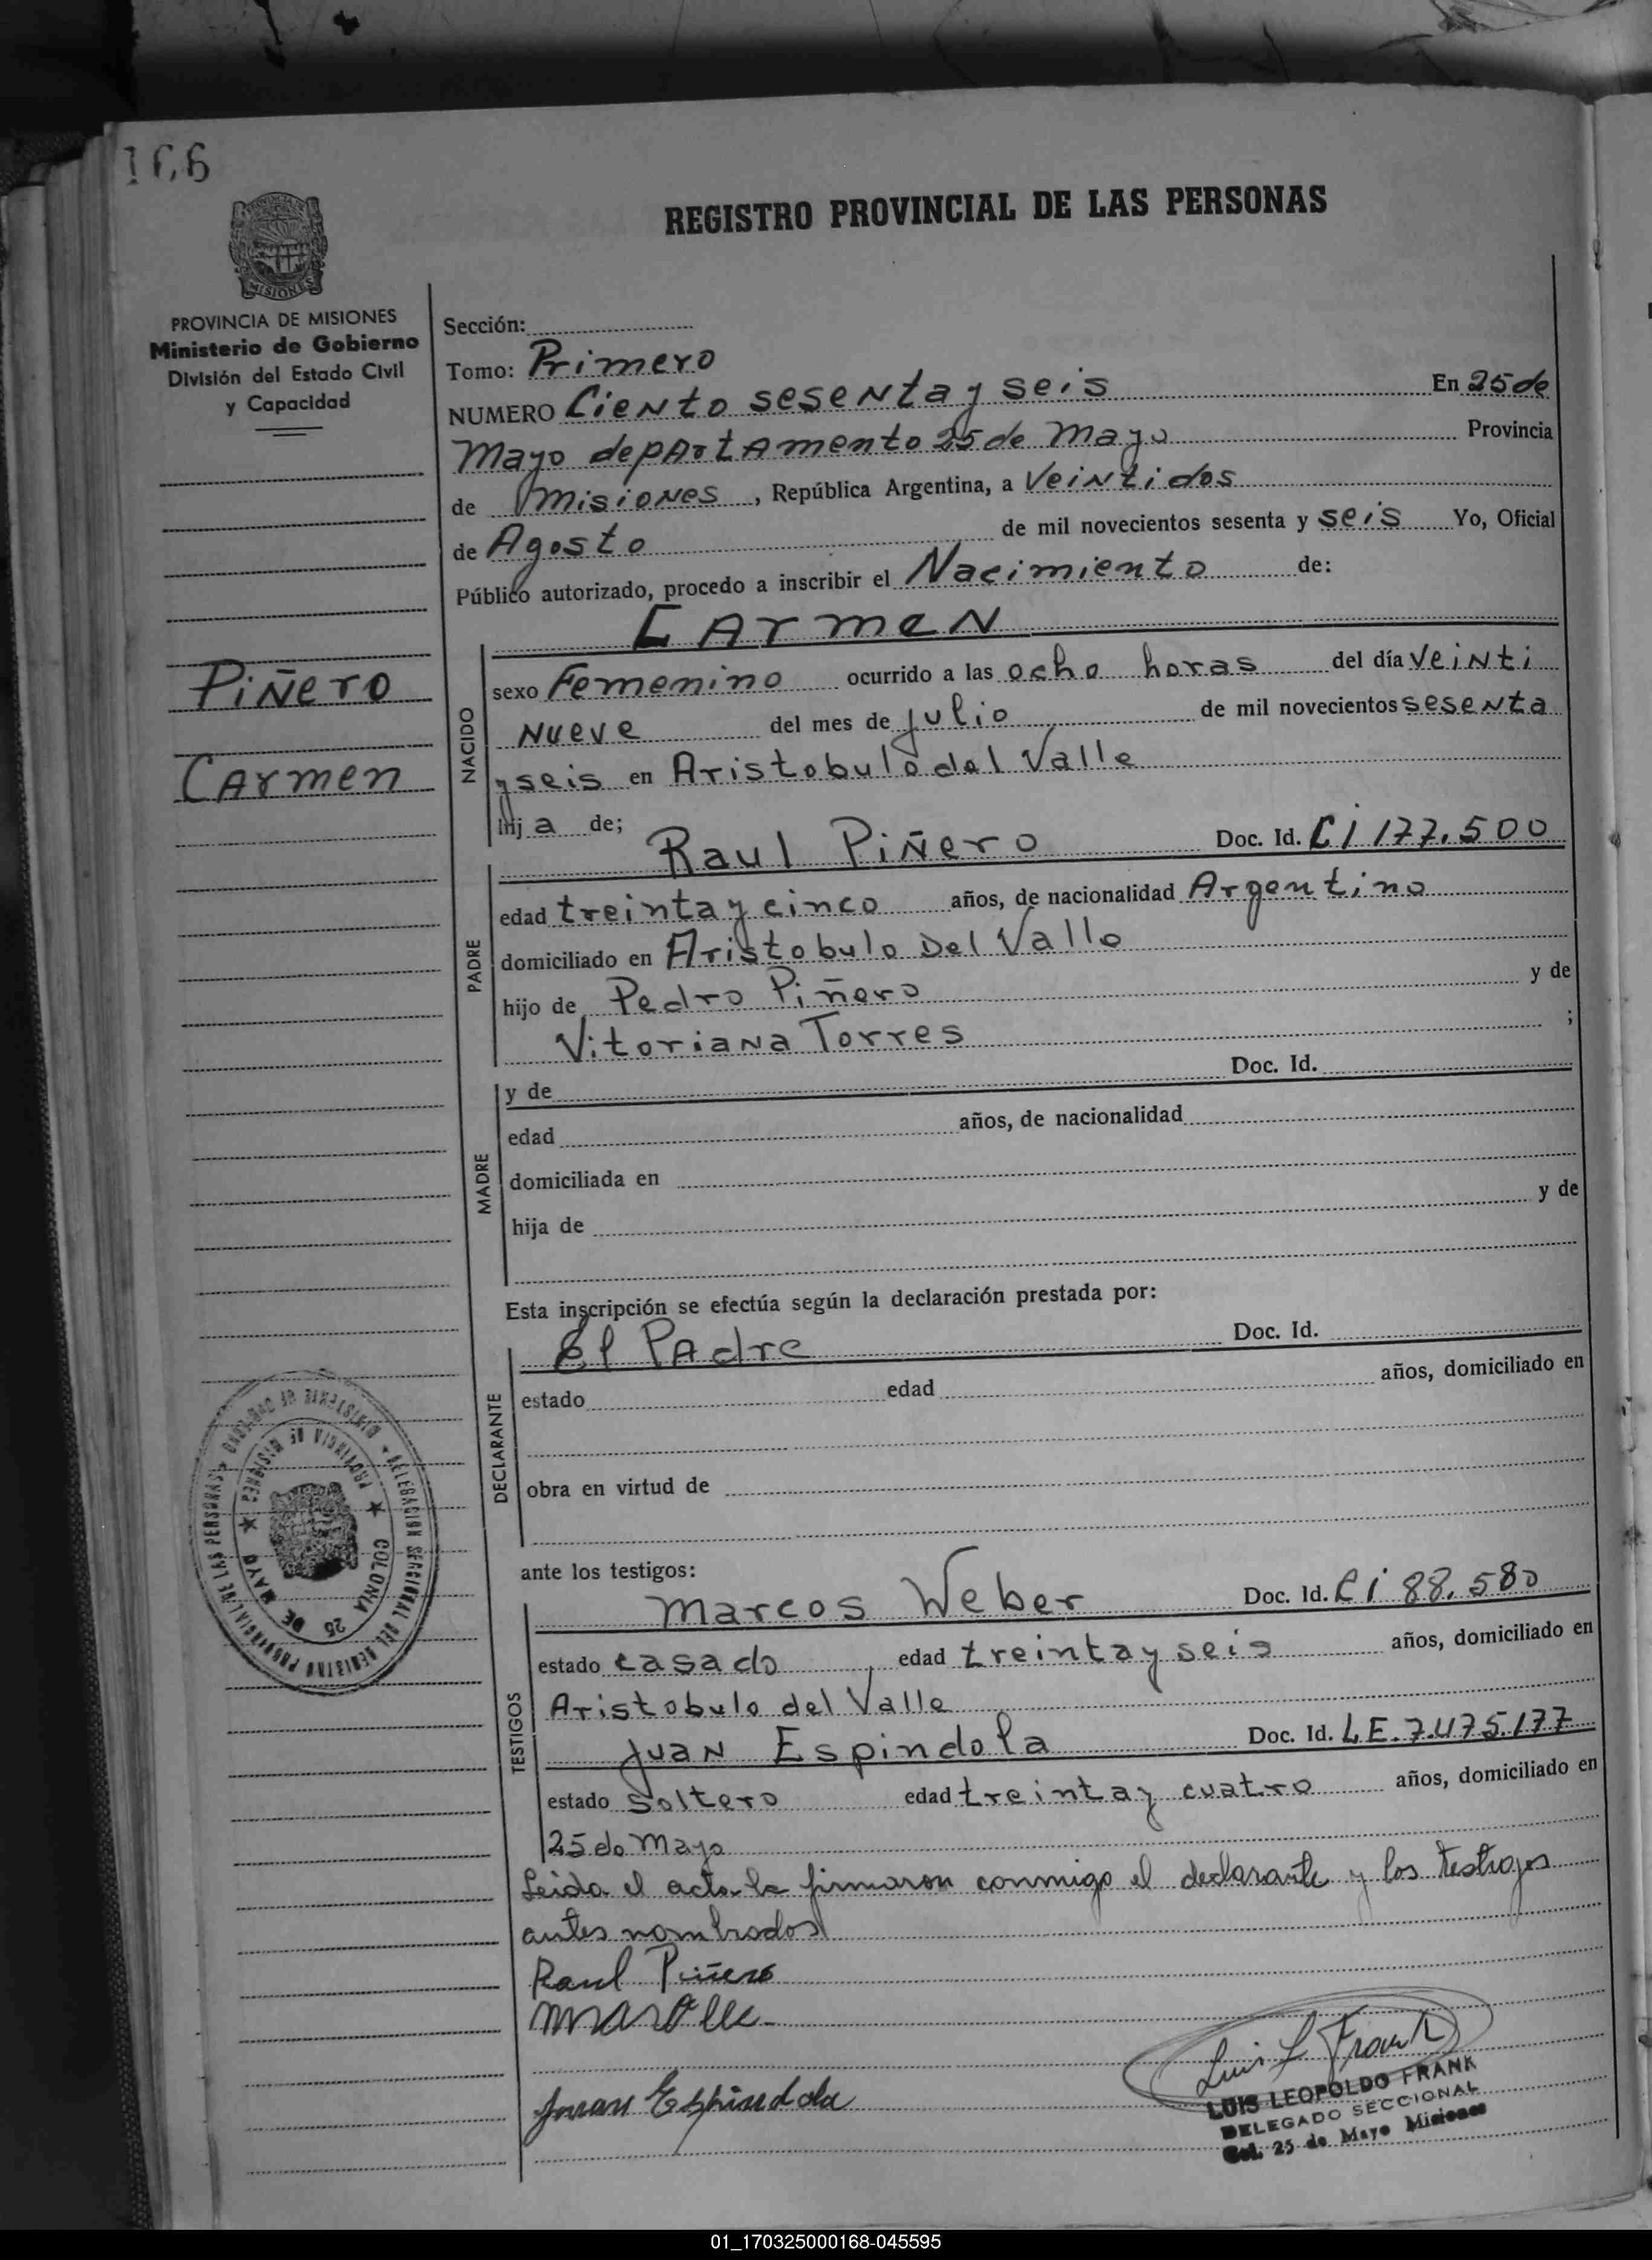 166
REGISTRO PROVINCIAL DE LAS PERSONAS
MISIONES
PROVINCIA DE MISIONES
Ministerio de Gobierno
División del Estado Civil
y Capacidad
Piñero
Carmen
Sección:
Tomo: Primero
NUMERO Ciento sesenta y seis En 25 de
Mayo departamento 25 de Mayo Provincia
de Misiones, República Argentina, a Veintidos
de Agosto de mil novecientos sesenta y seis Yo, Oficial
Público autorizado, procedo a inscribir el Nacimiento de:
Carmen
NACIDO
sexo Femenino ocurrido a las ocho horas del día veinti
nueve del mes de julio de mil novecientos sesenta
y seis en Aristobulo del Valle
hij a de;
Raul Piñero Doc. Id. Ci 177.500
PADRE
edad treinta y cinco años, de nacionalidad Argentino
domiciliado en Aristobulo Del Valle
hijo de Pedro Piñero y de
Vitoriana Torres ;
MADRE
y de Doc. Id.
edad años, de nacionalidad
domiciliada en
hija de y de
Esta inscripción se efectúa según la declaración prestada por:
El Padre Doc. Id.
DECLARANTE
estado edad años, domiciliado en
obra en virtud de
ante los testigos:
Marcos Weber Doc. Id. Ci 88.580
TESTIGOS
estado casado edad treinta y seis años, domiciliado en
Aristobulo del Valle
Juan Espindola Doc. Id. L.E. 7.475.177
estado soltero edad treinta y cuatro años, domiciliado en
25 de Mayo
Leida el acta la firmaron conmigo el declarante y los testigos
antes nombrados
Raul Piñero
Juan Espindola
Luis L Frank
LUIS LEOPOLDO FRANK
DELEGADO SECCIONAL
Col. 25 de Mayo Misiones
DELEGACION SECCIONAL DEL REGISTRO PROVINCIAL DE LAS PERSONAS
MINISTERIO DE GOBIERNO
PROVINCIA DE MISIONES
COLONIA 25 DE MAYO
01_170325000168-045595